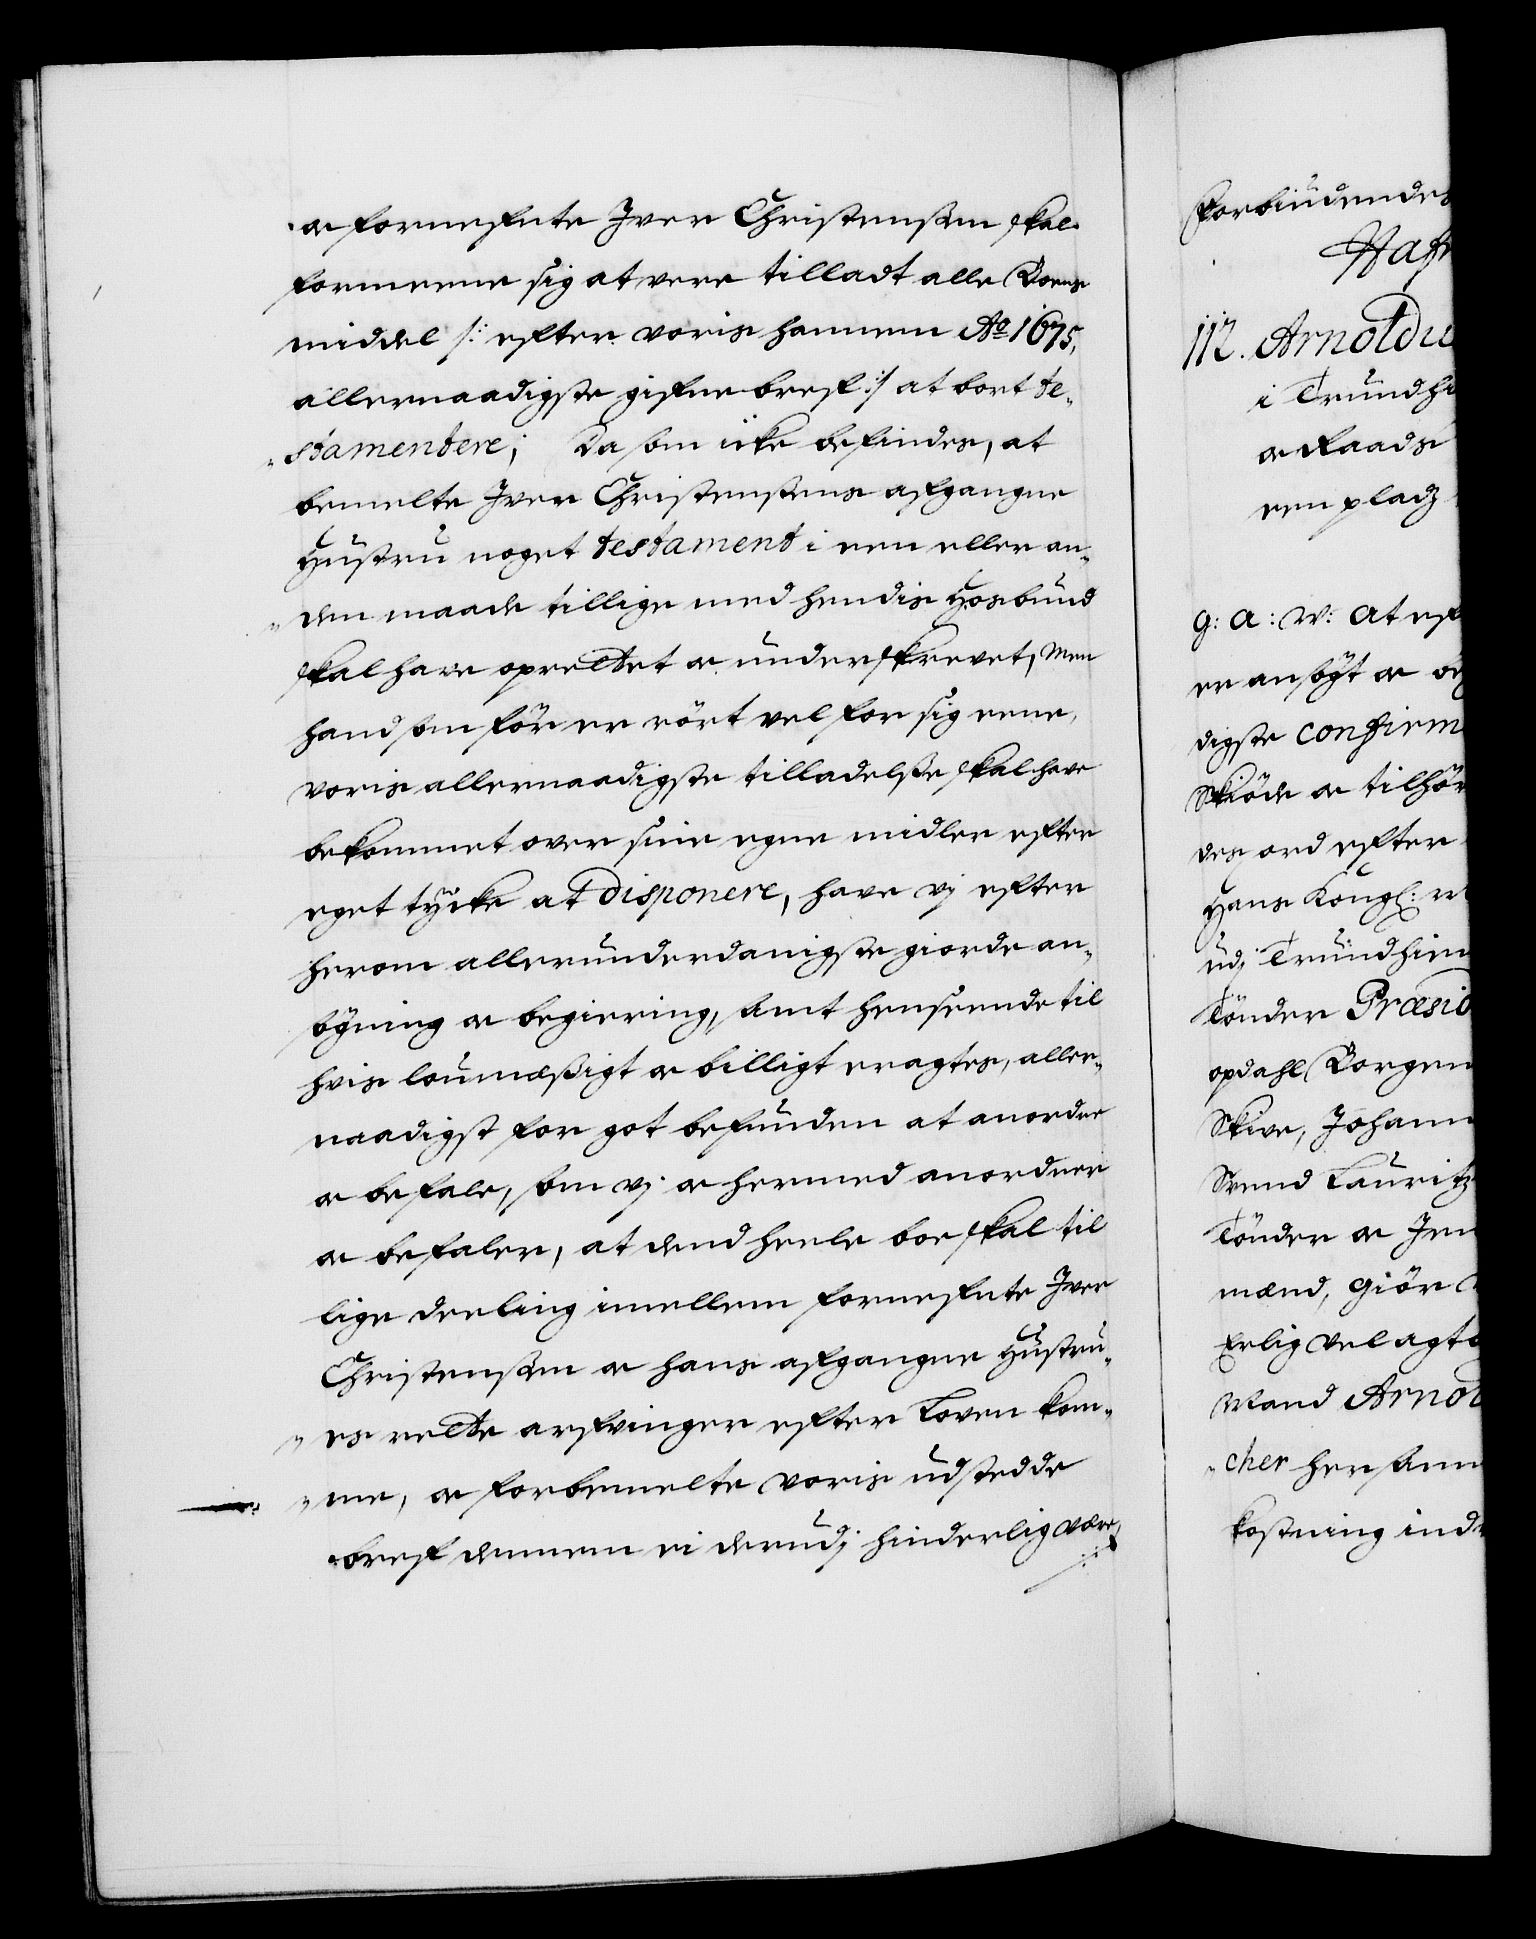 oc fornefnte Iver Christensøn skal
formeene sig at vere tilladt alle Boens
middel /: efter voris hannem Ao 1675,
allernaadigste gifne bref :/ at bort te-
stamentere; Da som icke befindes, at
bemelte Iver Christensøns afgangne
Hustru noget testament i een eller an-
den maade tillige med hendis Hosbund
skal have oprettet oc underskrevet, Men
hand som før er rört vel for sig eene,
voris allernaadigste tilladelsse skal have
bekommet over sine egne midler efter
eget tÿcke at Disponere, have vj efter
herom allerunderdanigste giorde an-
søgning oc begiering, samt henseende til
hvis loumæßigt oc billigt eragtes, aller-
naadigst for got befunden at anordne
oc befale, som vj oc hermed anordner
oc befaler, at dend heele boe skal til
lige deeling imellem fornefnte Iver
Christensøn oc hans afgangne Hustru-
es rette arfvinger efter Loven kom-
me, oc forbemelte voris udstedde
bref dennem ei derudj hinderlig være,
Forbiudendes
Hafn
112. Arnoldu
i Trundhi
oc Raads
een pladz
G: A: V: At eft
er ansøgt oc beg
digste confirm
Skiöde oc tilhör
des ord efter
Hans Kongl: M
udj Trundhiem
Tönder Præsid
opdahl Borgem
Skive, Johann
Svend Lauritz
Tönder oc Jen
mænd, Giör
Erlig velagt
Mand Arnol
cher her sam
kostning ind